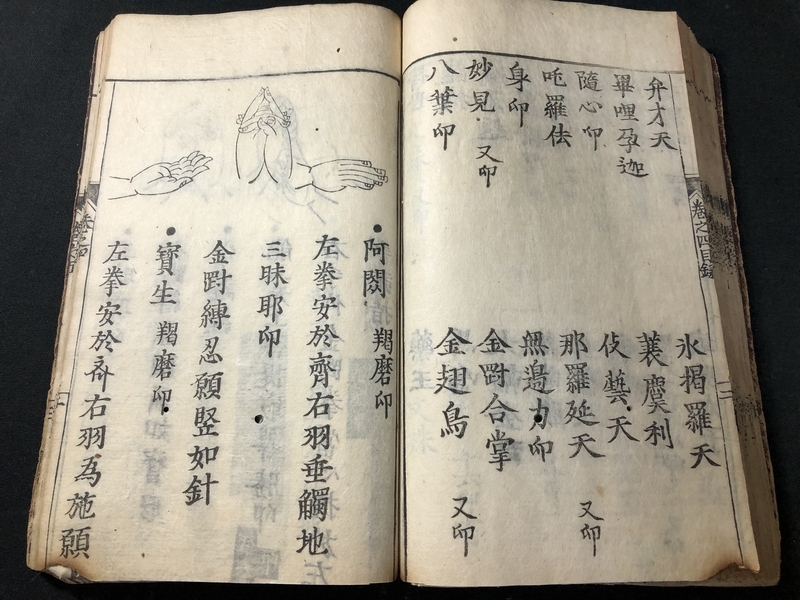 弁才天
畢哩孕迦
隨心印
吒羅佉
身印
妙見 又印
八葉印
氷掲羅天
蘘麌利
伎藝天
那羅延天 又印
無邉力印
金剛合掌
金翅鳥 又印
卷之四目録
二
阿閦 羯磨印
左拳安於齊右羽垂觸地
三昧耶印
金剛縛忍願竪如針
寶生 羯磨印
左拳安於斉右羽為施願